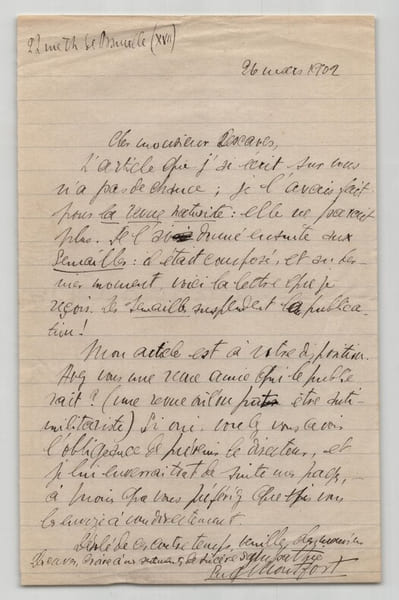 22 rue Th. de Banville (XVII)
26 mars 1902
Cher monsieur Descaves,
L'article que j'ai écrit sur vous
n'a pas de chance ; je l'avais fait
pour la revue naturiste : elle ne paraît
plus. Je l'ai donné ensuite aux
Semailles : il était composé, et au der-
nier moment, voici la lettre que je
reçois. Les Semailles suspendent la publica-
tion !
Mon article est à votre disposition.
Avez vous une revue amie qui le publie
rait ? (une revue où l'on peut être anti-
militariste) Si oui, voulez vous avoir
l'obligeance de prévenir le directeur, et
je lui enverrai tout de suite mes pages, -
à moins que vous préfériez que je vous
les envoie à vous directement.
Désolé de ces contre temps, veuillez, cher monsieur
Descaves, croire à mes sentiments de sincère sympathie
Eug Montfort